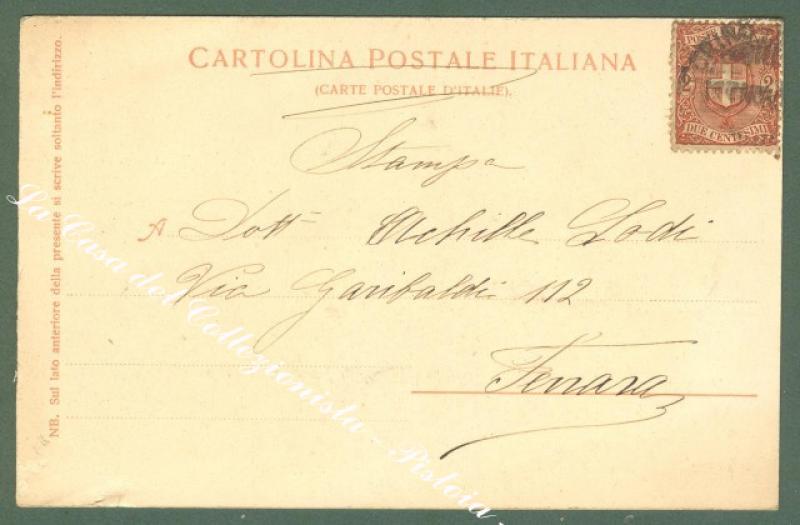 CARTOLINA POSTALE ITALIANA
(CARTE POSTALE D'ITALIE).
POSTE
2
DUE CENTESIMI
TORINO
Stampa
A Dott Achille Lodi
Via Garibaldi 112
Ferrara
NB. Sul lato anteriore della presente si scrive soltanto l'indirizzo.
La Casa del Collezionista - Pistoia